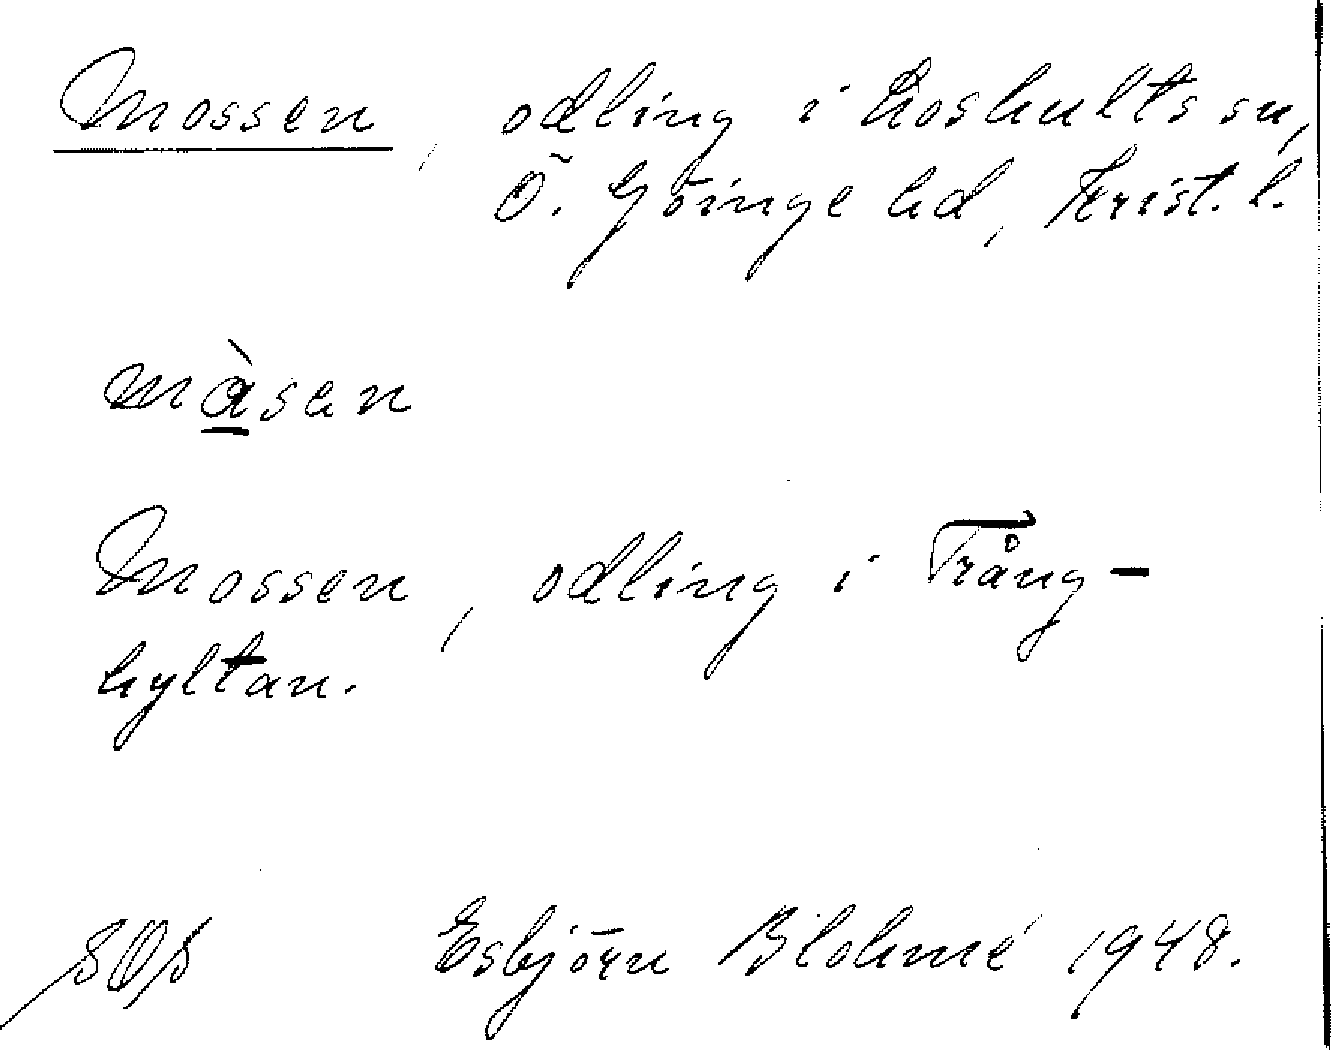 Mossen, odling i Loshults sn,
Ö. Göinge hd, Krist. l.
màsen
Mossen, odling i Trång-
hyltan.
Esbjörn Blohmé 1948.